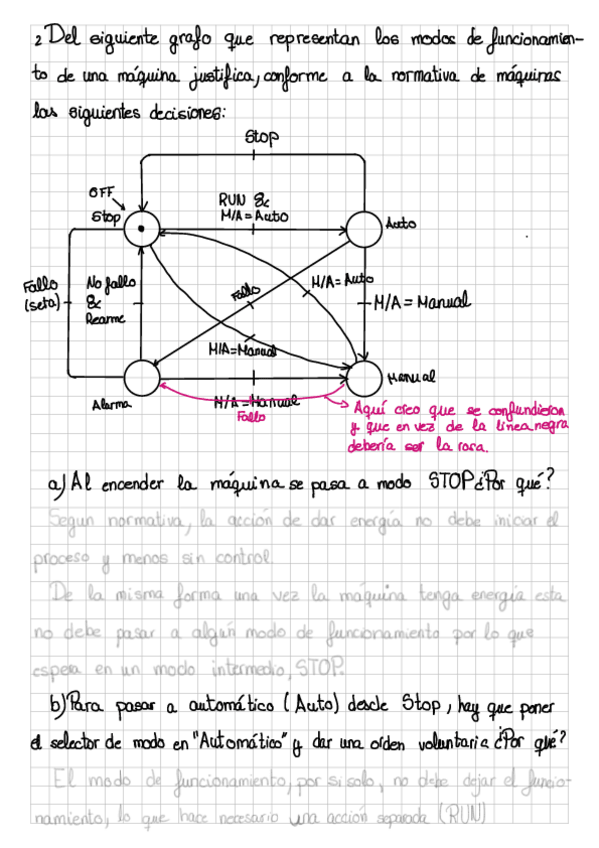 2 Del siguiente grafo que representan los modos de funcionamien-
to de una máquina justifica, conforme a la normativa de máquinas
las siguientes decisiones:
Stop
OFF
Stop
RUN &
M/A = Auto
Auto
Fallo
(seta)
No fallo
&
Rearme
Fallo
M/A = Auto
M/A = Manual
M/A = Manual
Alarma
M/A = Manual
Manual
Fallo
Aquí creo que se confundieron
y que en vez de la línea negra
debería ser la rosa.
a) Al encender la máquina se pasa a modo STOP ¿Por qué?
Segun normativa, la acción de dar energía no debe iniciar el
proceso y menos sin control.
De la misma forma una vez la maquina tenga energía esta
no debe pasar a algún modo de funcionamiento por lo que
espera en un modo intermedio, STOP.
b) Para pasar a automático (Auto) desde Stop, hay que poner
el selector de modo en "Automático" y dar una orden voluntaria ¿Por qué?
El modo de funcionamiento, por si solo, no debe dejar el funcio-
namiento, lo que hace necesario una acción separada (RUN)